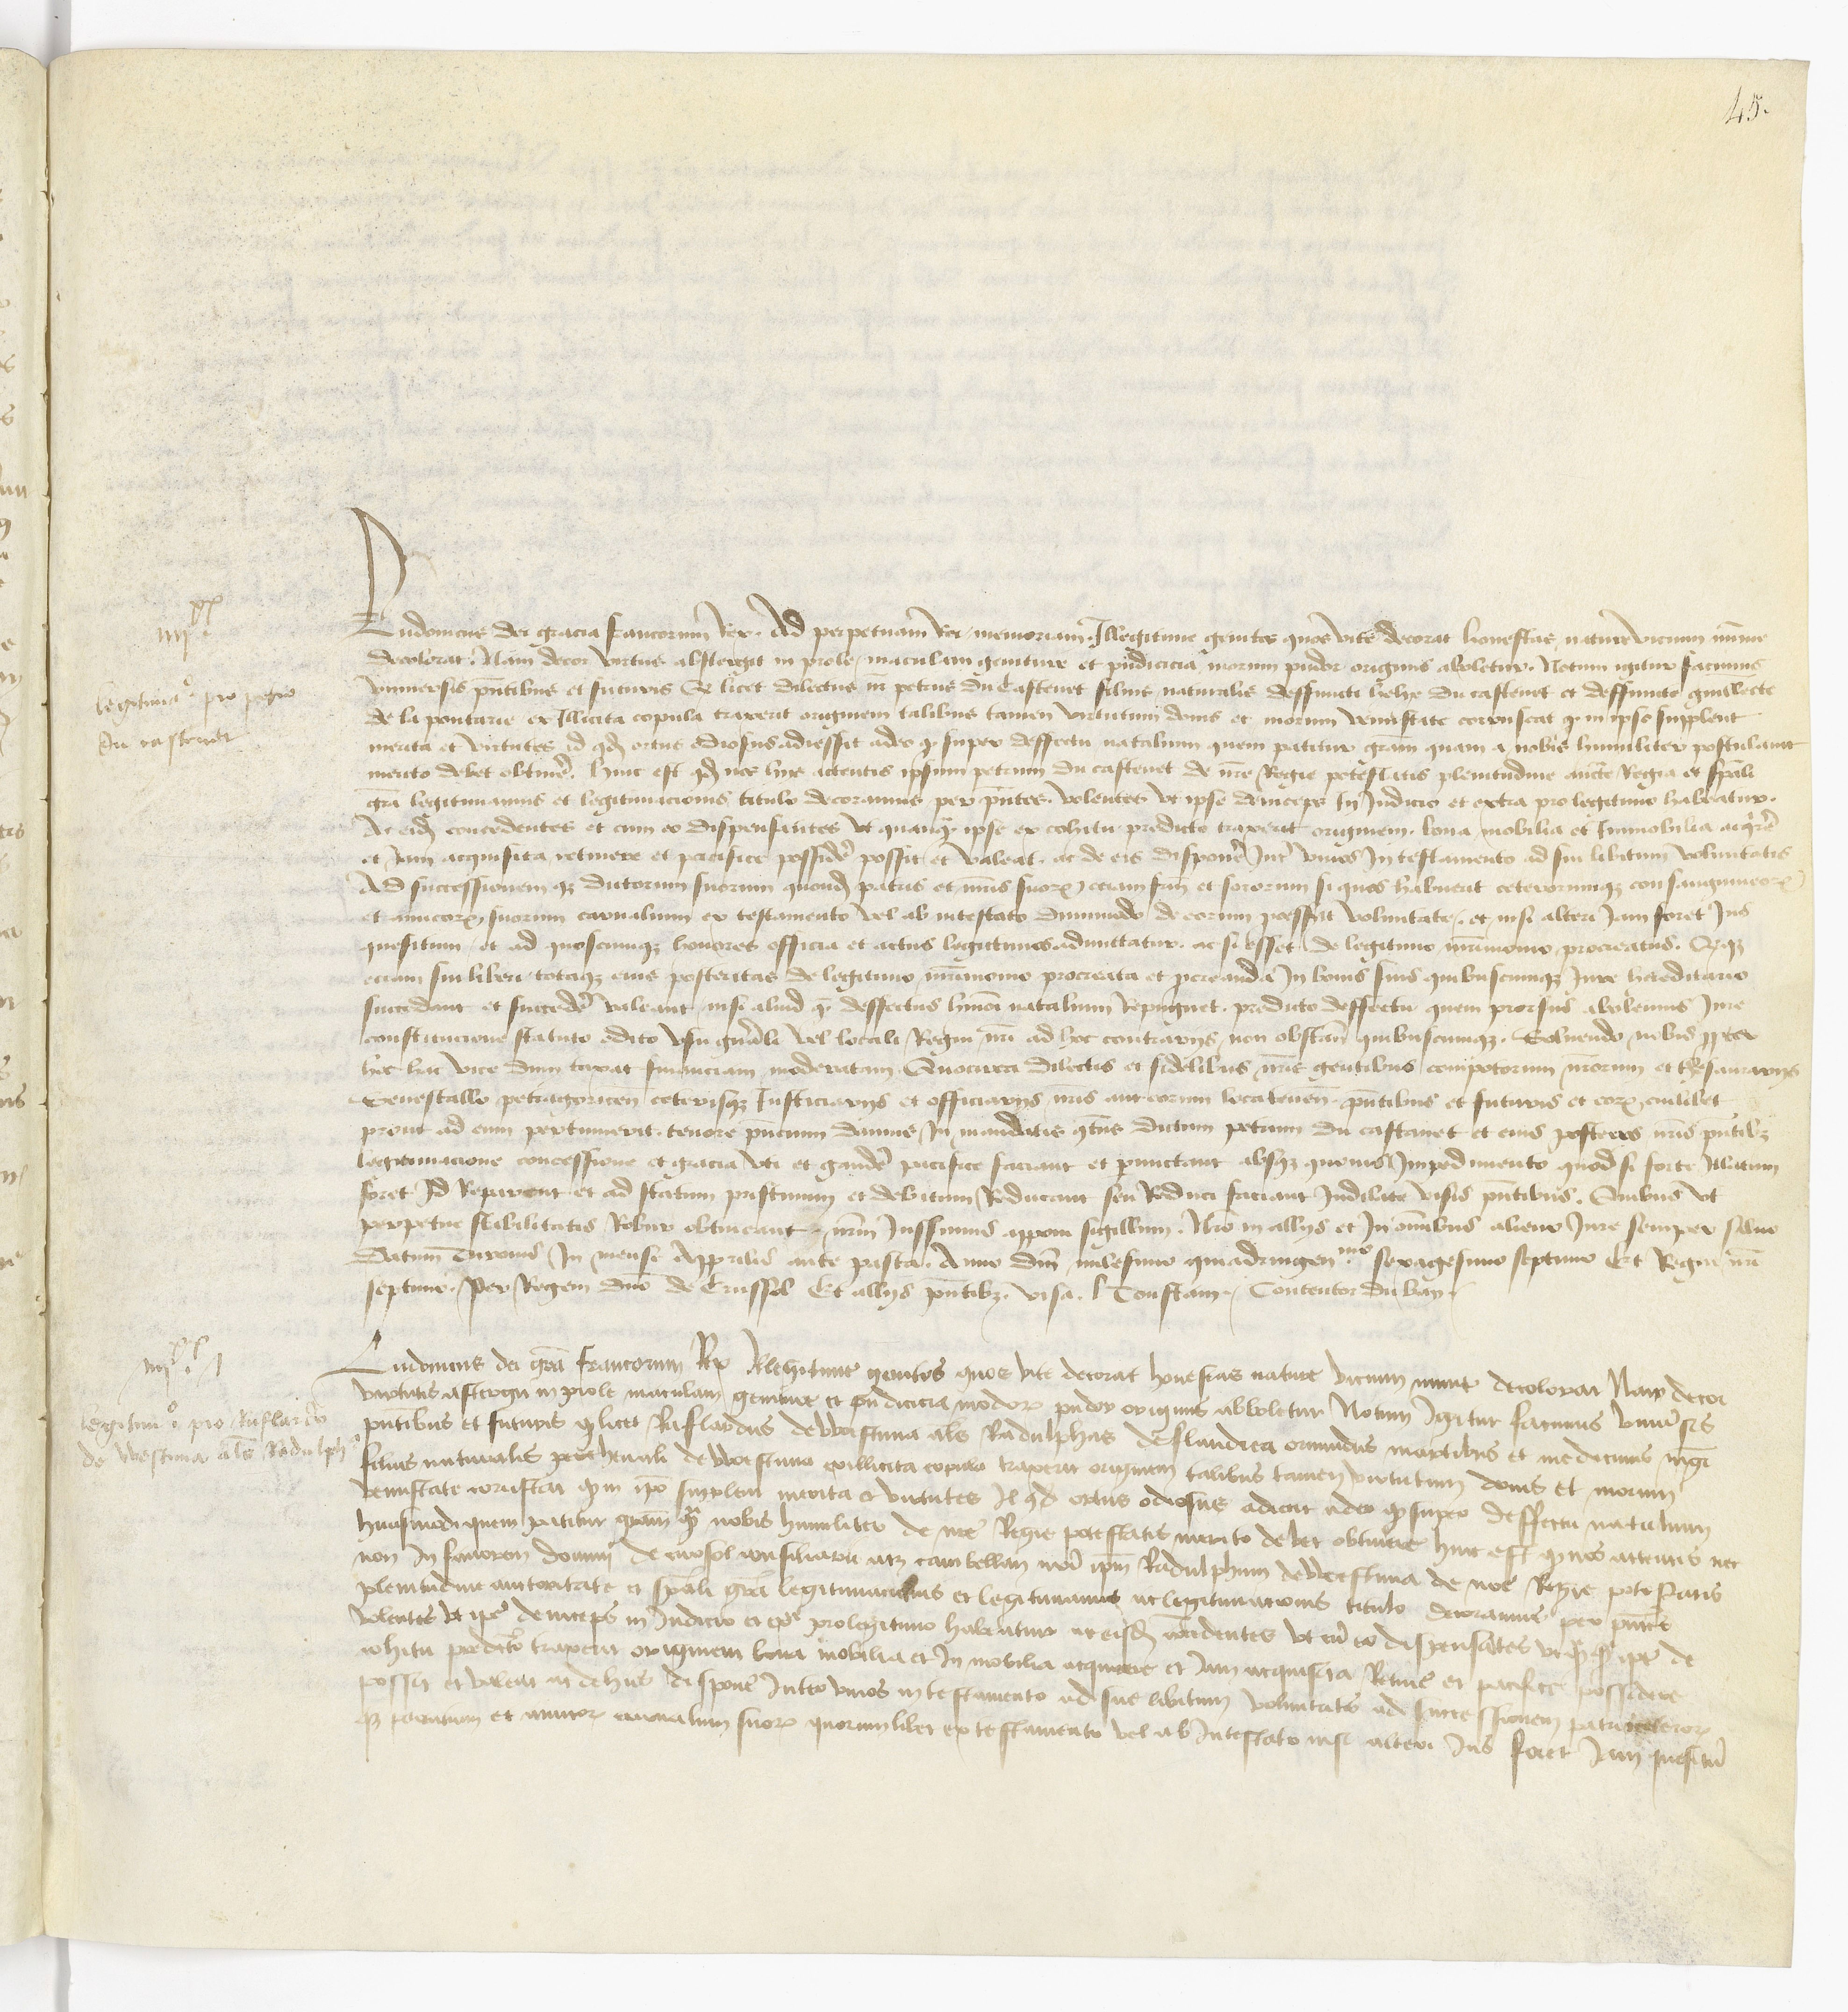 45.
Ludovicus dei gracia francorum Rex. Ad perpetuam Rei memoriam. Illegitime genitos quos vite decorat honestas nature vicium minime
decolorat. Nam decor virtutis abstergit in prole maculam geniture et pudicicia morum pudor originis aboletur. Notum igitur facimus
Universis pntibus et futuris Q licet dilectus nr petrus du Castenet filius naturalis deffuncti helye du castenet et deffuncte
de la pontarie ex Illicita copula traxerit originem talibus tamen virtutum donis et morum venustate coruscat q in ipso supplent
merita et virtutes id qd ortus odiosus adiessit adeo q super deffectu natalium quem patitur gram quam a nobis humiliter postulavit
merito debet obtinere. hinc est qd nos hiis actentis ipsum petrum du castenet de nre Regie potestatis plenitudine aucte Regia et spali
gra legitimamus et legitimacionis titulo decoramus per pntes. volentes vt ipse deinceps In Judicio et extra pro legitimo habeatur.
Ac eid concedentes et cum eo dispensantes vt quanq ipse ex cohitu predicto traxerit originem. bona mobilia et Immobilia acqrere
et Jam acquisita retinere et pacifice possidere possit et valeat. ac de eis disponere Inter vivos In testamento ad sui libitum voluntatis
Ad successionemq dictorum suorum quond patris et mris suor eciam frm et sororum si quos habuerit ceterorumq consanguineor
et amicor suorum carnalium ex testamento vel ab intestato dummodo de eorum processerit voluntate. et nisi alteri Jam foret Jus
quesitum. et ad quoscumq honores officia et actus legitimos admittatur. ac si esset de legitimo mrimonio procreatus. Qq
eciam sui liberi totaq eius posteritas de legitimo mrimonio procreata et pcreanda In bonis suis quibuscumq Jure hereditario
succedant et succedere valeant nisi aliud q deffectus hmoi natalium Repugnet. predicto deffectu quem prorsus abolemus Jure
constitucione statuto edito vsu gnali vel locali Regni nri ad hoc contrariis non obstan quibuscumq. Solvendo nobis ppter
hoc hac vice dum taxat financiam moderatam Quocirca dilectis et fidelibus nris gentibus compotorum nrorum et thesaurariis
Senescallo petragoricen ceterisq Justiciariis et officiariis nris aut eorum locatenen pntibus et futuris et eor cuilibet
prout ad eum pertinuerit. tenore pncium damus In mandatis qtus dictum petrum du castanet et eius posteros nris pntibz
legitimacione concessione et gracia vti et gaudere pacifice faciant et permictant absq quovis Impedimento quod si forte Illatum
foret Id Reparent et ad statum pristinum et debitum Reducant seu Reduci faciant Indilate visis pntibus. Quibus vt
perpetue stabilitatis Robur obtineant nrm Jussimus apponi sigillum. Nro in aliis et In omnibus alieno Jure semper salvo
Datum Turonis In mense Apprilis ante pasca. Anno dni milesimo quadringen.mo sexagesimo septimo Et Regni nri
septimo. Per Regem dno de Crussol Et aliis pntibz. visa. l Constam. Contentor du ban.
legitima o pro petro
du castenet
Ludovicus dei gra francorum Rex Illegitime genitos quos vite decorat honestas nature vicium minime decolorat Nam decor
virtutis astergit in prole maculam geniture et pudicicia modor pudor originis abboletur Notum Igitur facimus vniversis
pntibus et futuris q licet Riflardus de Westina als Radulphus de flandrea oriundus in artibus et medicinis mgr
filius naturalis de Westina exillicita copula traxerit originem talibus tamen virtutum donis et morum
venustate coruscat q in ipo supplent merita et virtutes Id qd ortus odiosus adicit adeo q super deffectu natalium
huiusmodi quem patitur gram q nobis humiliter de nre Regie potestatis merito debet obtinere hinc est q nos attentis nec
non In favorem domini de crusol consiliarii atq cambellani nri ipm Radulphum de Westina de nre Regie potestatis
plenitudine autoritate et spali gra legitimacionis et legitimamus ac legitimacionis titulo decoramus per pntes
volentes vt ipe deinceps in Judicio et ext pro legitimo habeatur ac eisd concedentes vt cu eo dispensates vt q q ipe de
cohitu predicto traxerit originem bona mobilia et In mobilia acquirere et Jam acquisita Retine et pacifice possidere
possit et valeat ac de hiis dispone Inter vivos in testamento ad sue libitum voluntatis ad successionem patris ceteror
q parentum et amicor carnalium suor quorumlibet ex testamento vel ab Intestato nisi alteri Jus foret Jam quesitu
legitim o pro Riflardo
de Westina als Radulpho